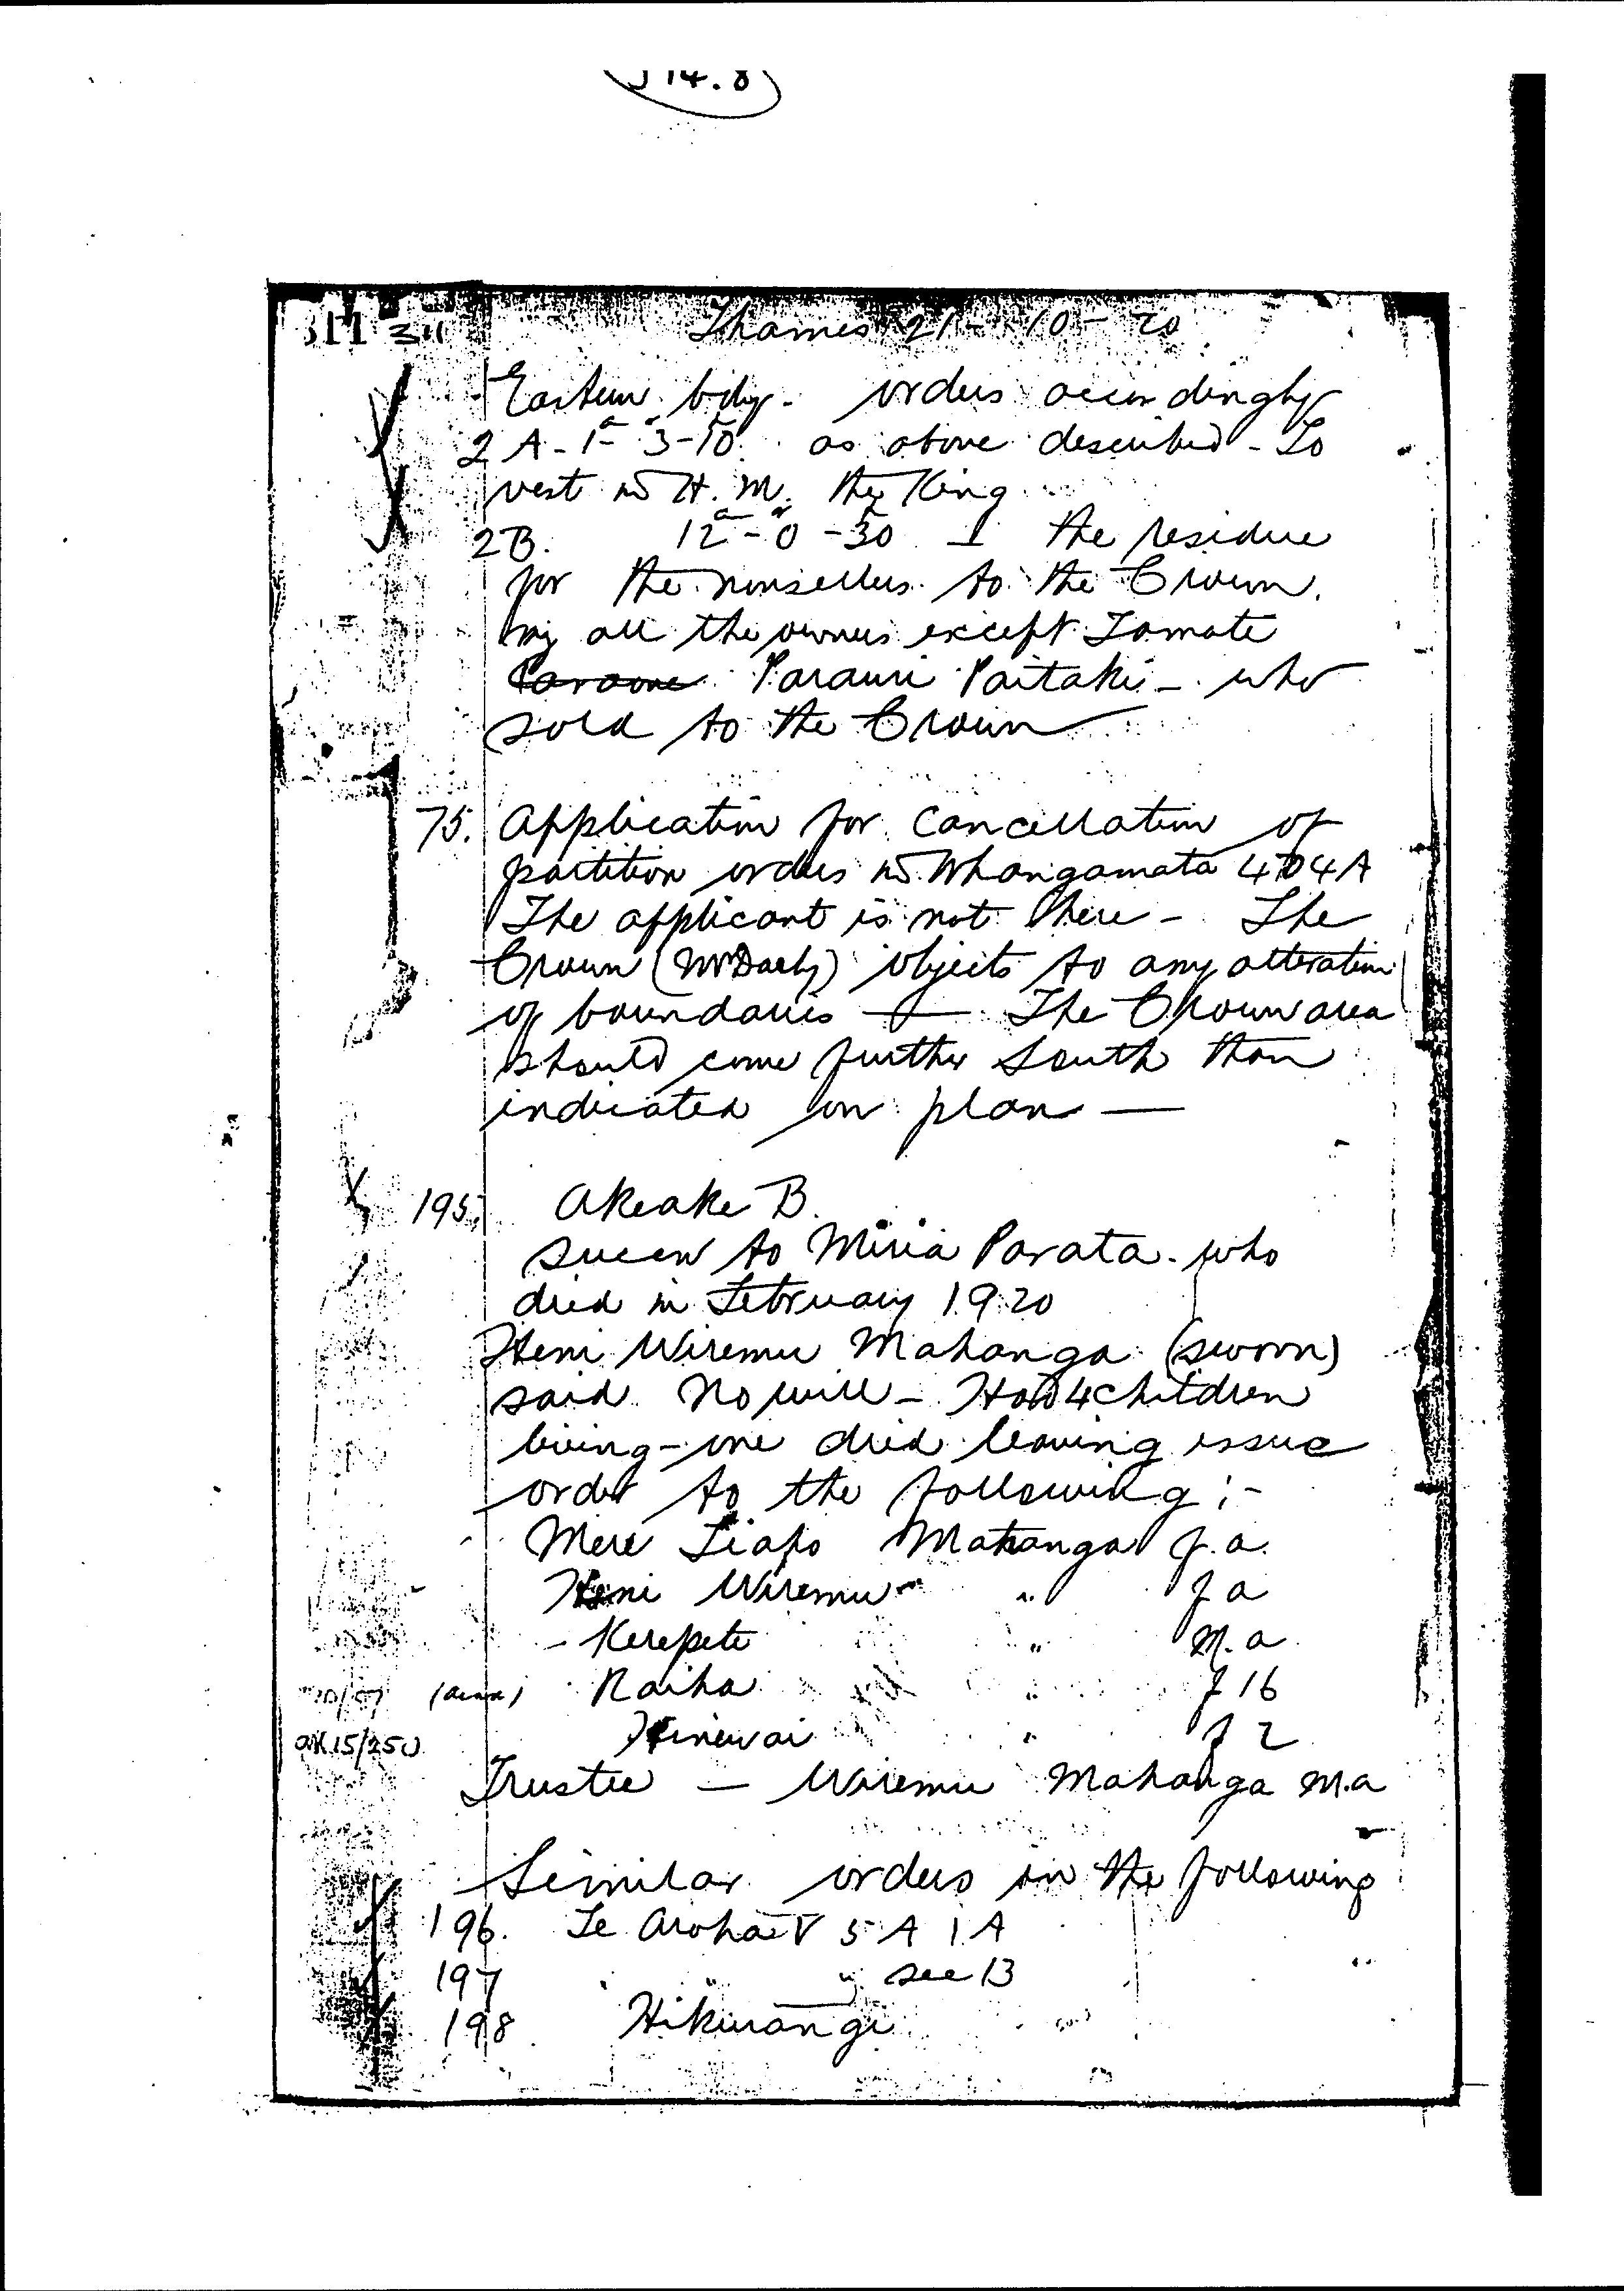 J 14.8
311 311 Thames 21-10-20
Eastern bdy. orders accordingly
2 A - 1a 3r 10p as above described - To
vest in H. M. the King
2B. 12a - 0r - 30p the residue
for the nonsellers to the Crown.
all the owners except Tamate
Paraone Parauri Paitaki - who
sold to the Crown
75. Application for Cancellation of
partition orders in Whangamata 4D4A
The applicant is not here - The
Crown (Mr Darby) objects to any alteration
of boundaries - The Crown area
should come further South than
indicated on plan —
195. Akeake B.
Succn to Miria Parata. who
died in February 1920
Heni Wiremu Mahanga (sworn)
said No will - Had 4 children
living - one died leaving issue
order to the following :-
Mere Tiapo Mahanga f.a.
Heni Wiremu " f a
Kerepeti " M.a
Raiha " f 16
Hinewai " f 2
AK 15/250
Trustee — Wiremu Mahanga M.a
Similar orders in the following
196. Te Aroha V 5 A 1 A
197 " " see 13
198 Hikurangi